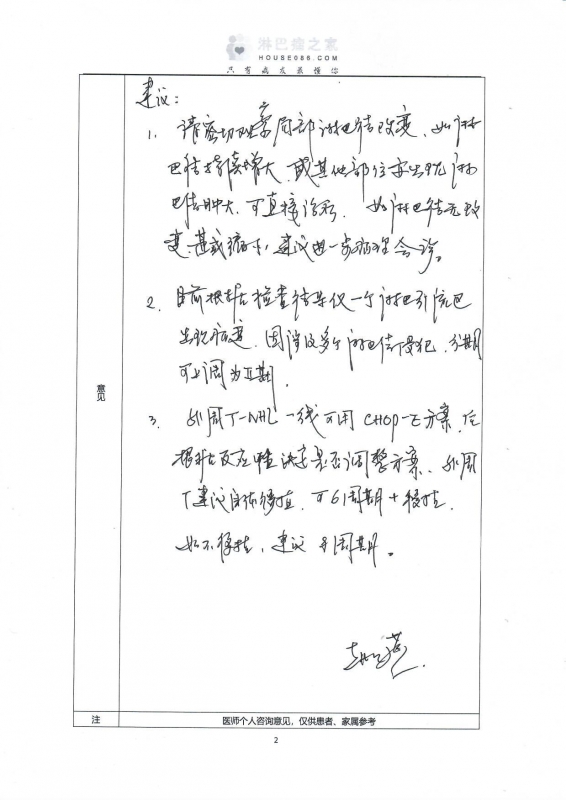 淋巴瘤之家
HOUSE086.COM
只有病友最懂你
建议：
1. 请密切观察局部淋巴结改变，如淋
巴结持续增大，或其他部位亦出现淋
巴结肿大，可直接诊新。如淋巴结无改
变，甚或缩小，建议进一步病理会诊。
2. 目前根据检查结果仅一个淋巴引流区
出现病变，因涉及多个淋巴结侵犯，分期
可上调为Ⅱ期。
3. 外周T-NHL一线可用CHOP-E方案，后
根据反应性决定是否调整方案。外周
T建议自体移植，可6周期+移植，
如不移植，建议8周期。
意见
注
医师个人咨询意见，仅供患者、家属参考
2